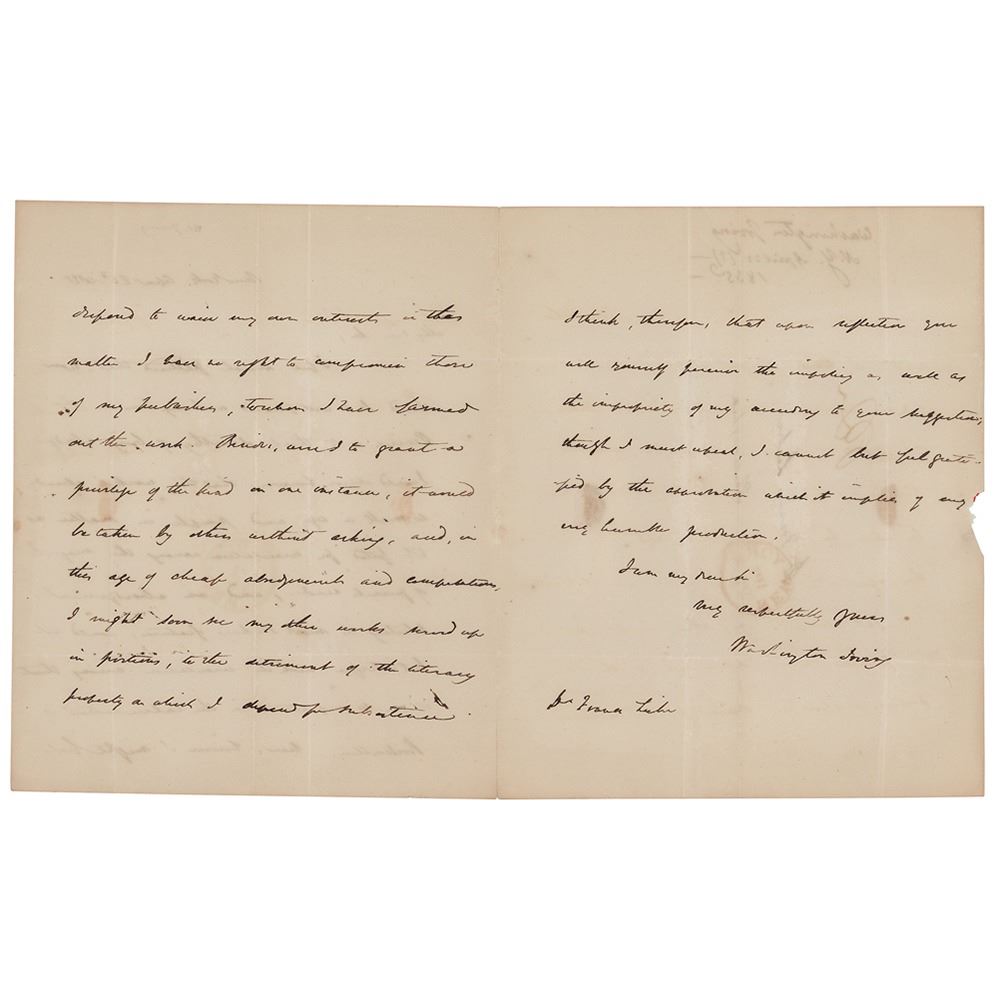 disposed to waive my own interests in this
matter I have no right to compromise those
of my publishers, to whom I have farmed
out the work. Besides, were I to grant a
privilege of the kind in one instance, it would
be taken by others without asking, and, in
this age of cheap abridgements and compilations,
I might soon see my other works served up
in portions, to the detriment of the literary
property on which I depend for subsistence.
I think, therefore, that upon reflection you
will yourself perceive the impolicy as well as
the impropriety of my acceding to your suggestion;
though I must repeat, I cannot but feel grati-
fied by the approbation which it implies of my
my humble production.
I am my dear Sir
very respectfully yours
Washington Irving
Dr Francis Lieber
Washington Irving
N.Y. April
1835